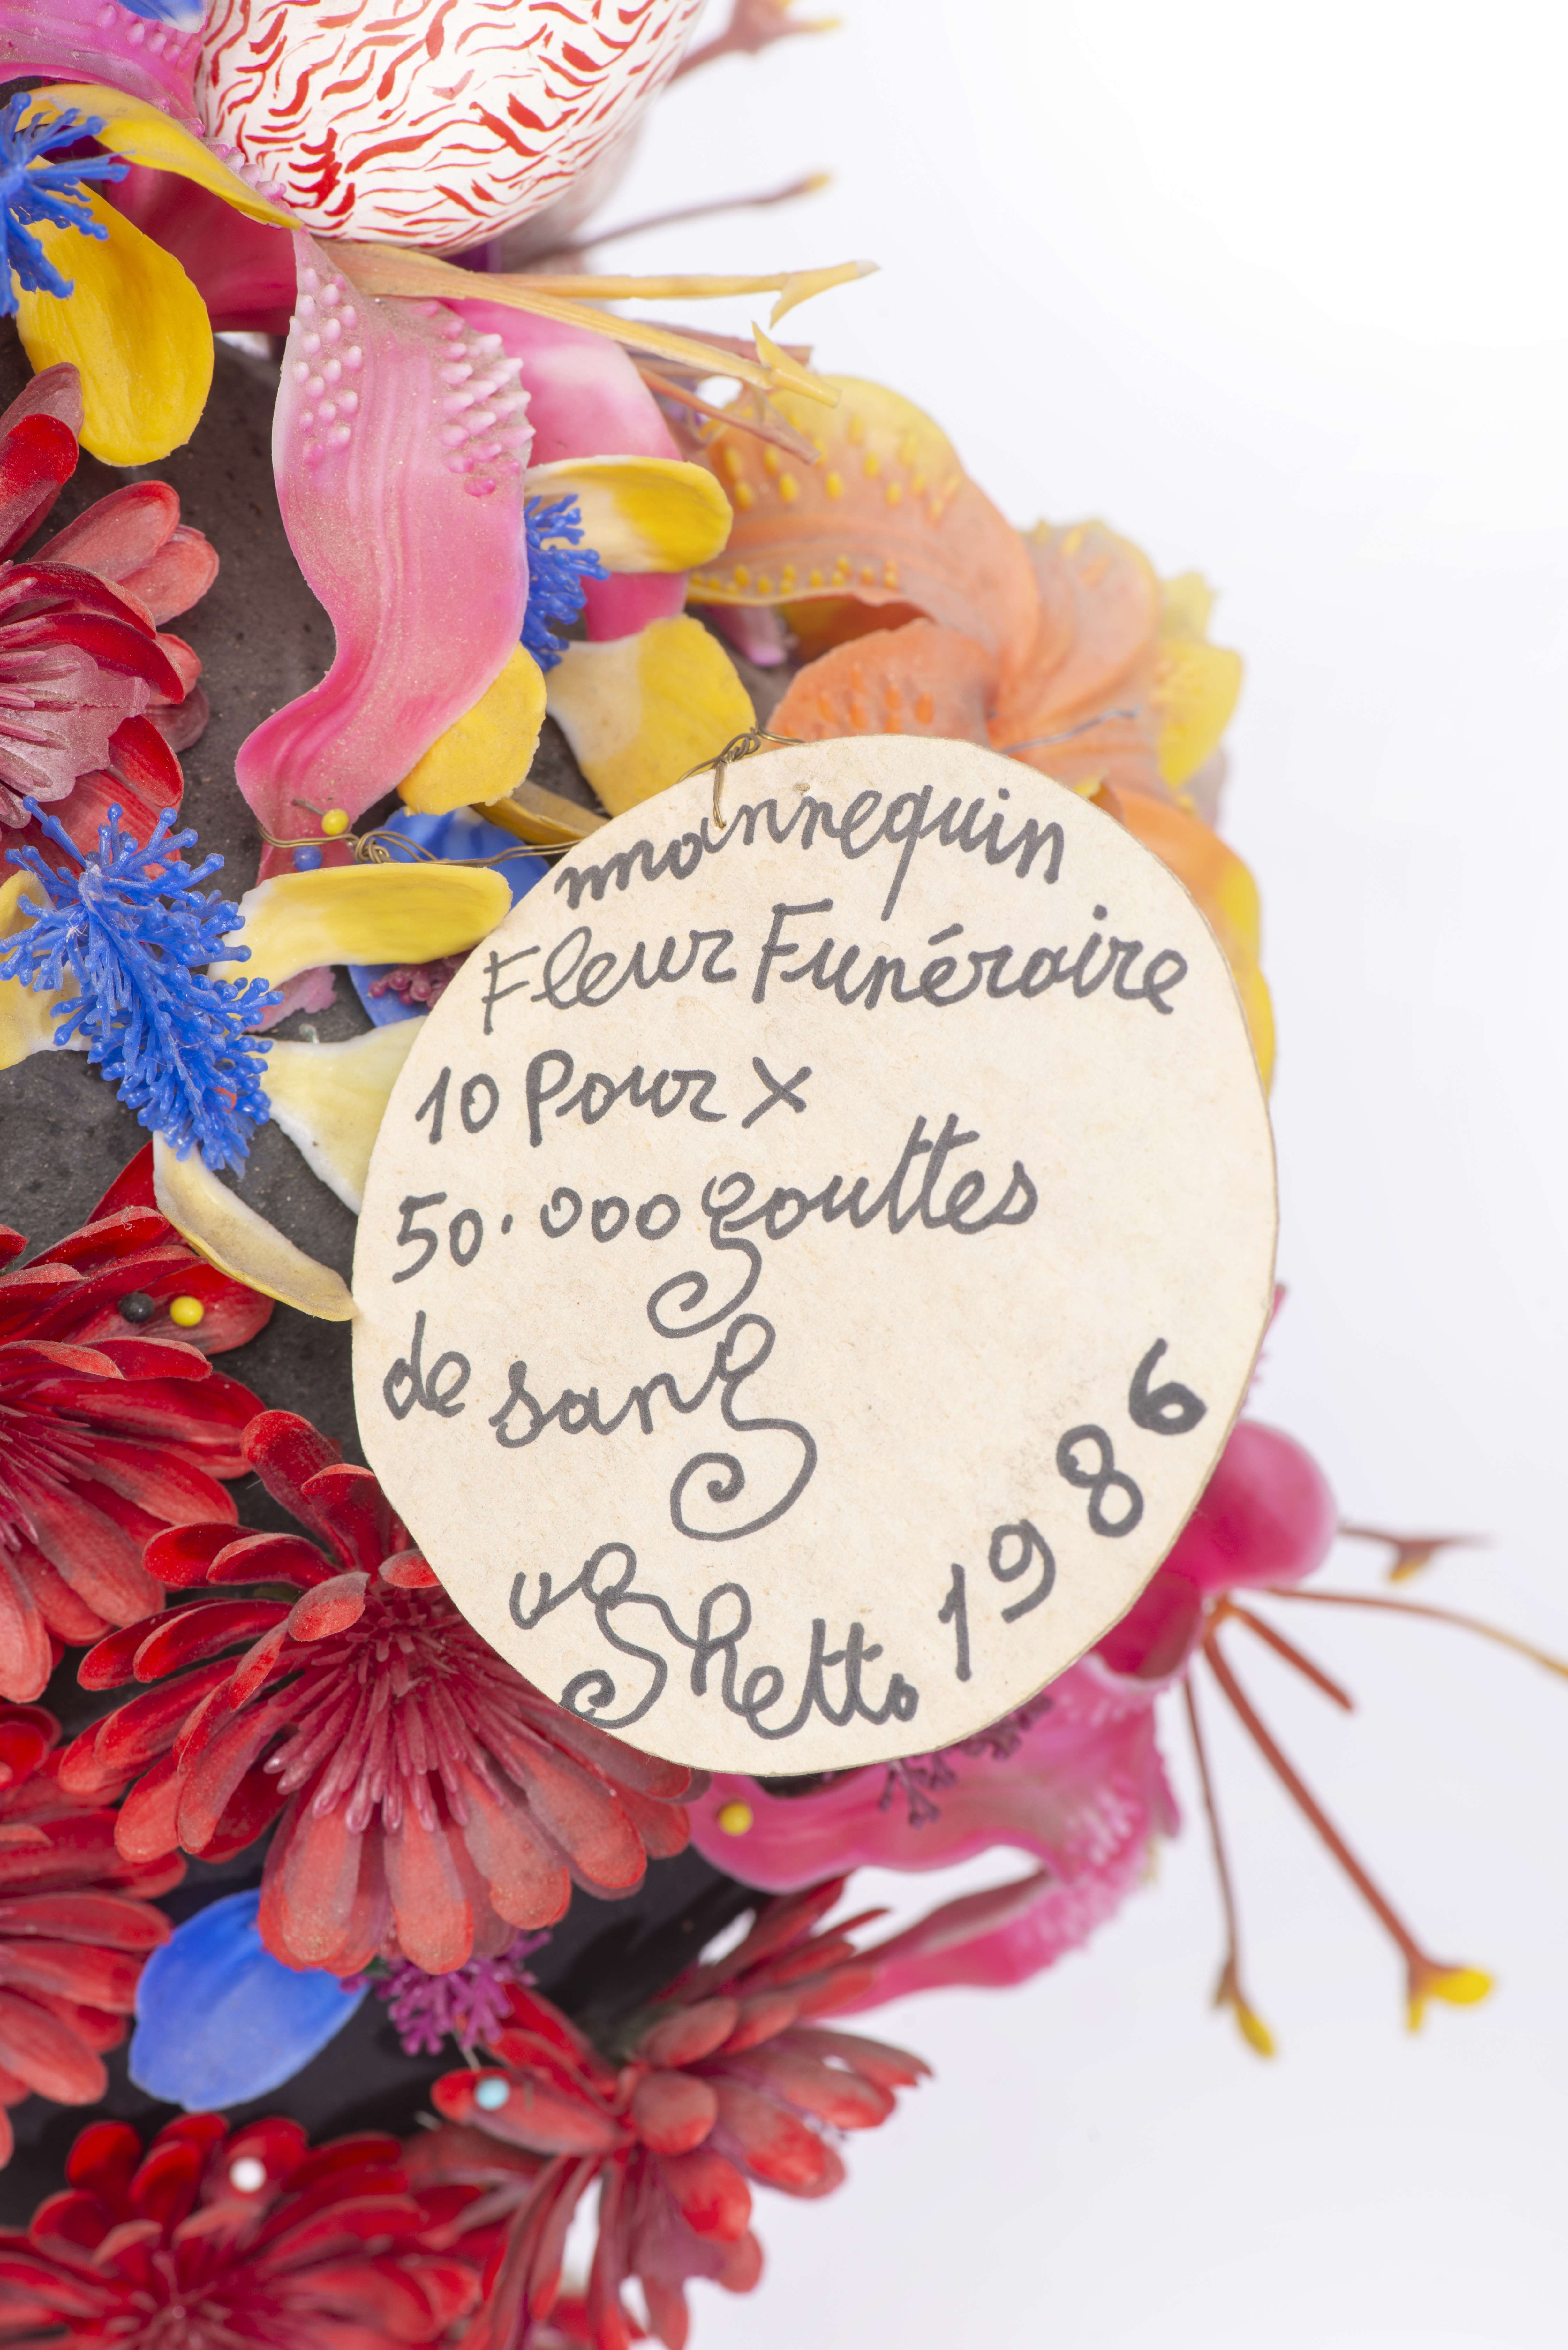 mannequin
Fleur Funéraire
10 Pour X
50.000 gouttes
de sang
Ghetto 1986